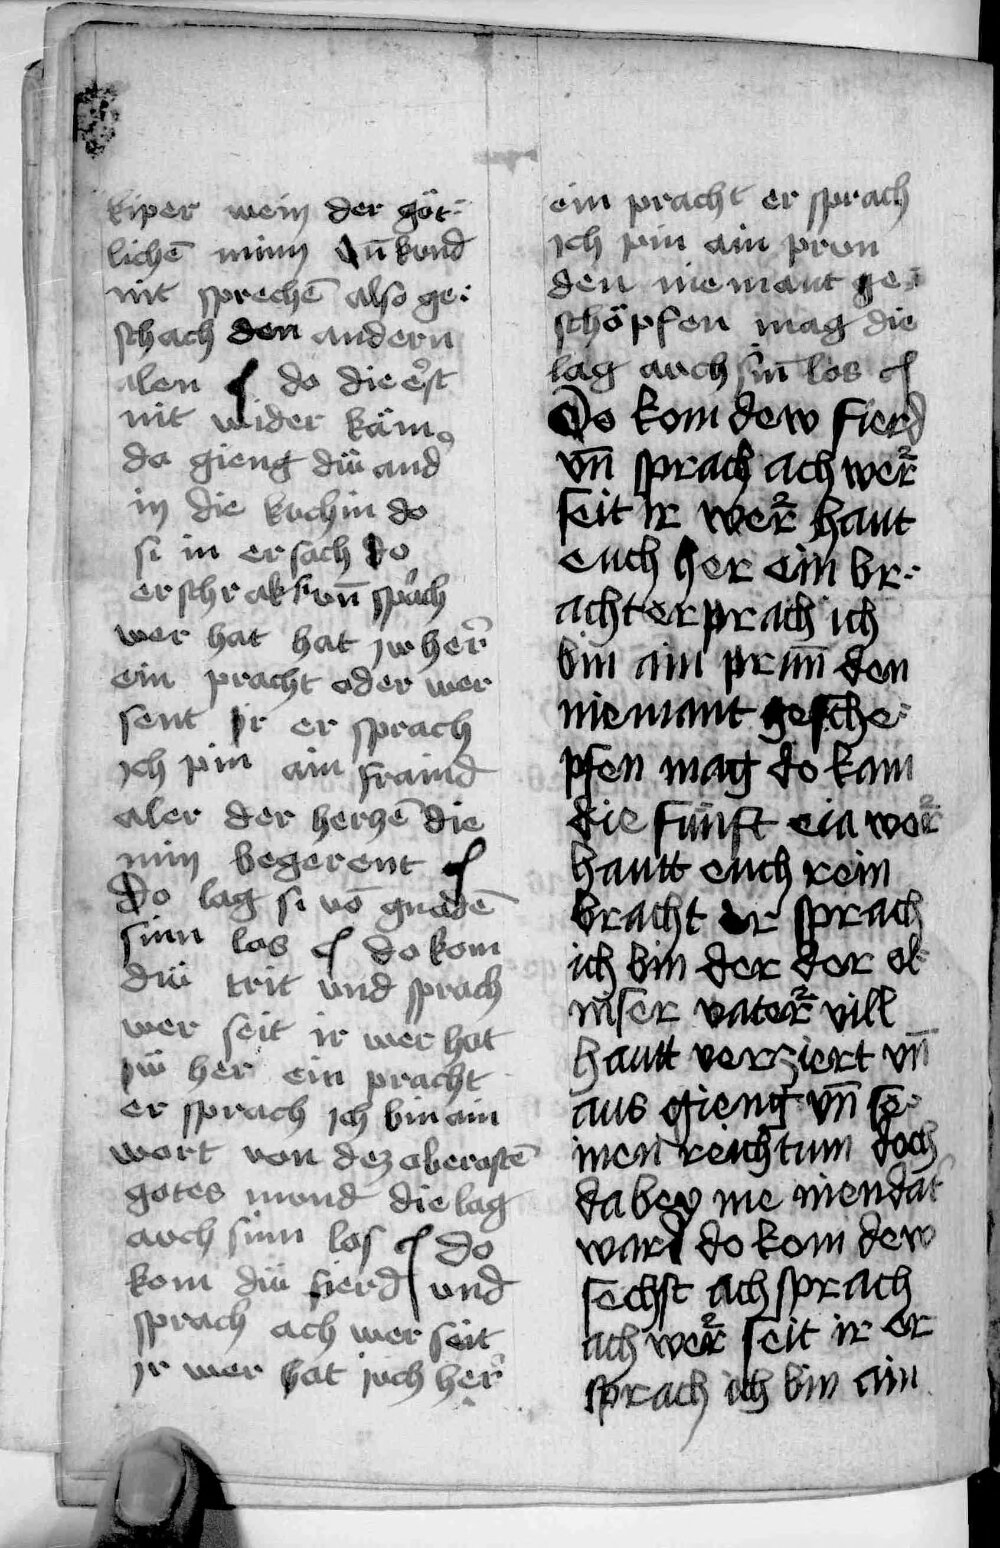 kiper wein der göt⸗
lichē minn vn̄ kond
nit sprechē also ge⸗
schach den andern
alen do die erst
nit wider käm
do gieng diü and
in die kuchin do
si in ersach do
erschrak vn̄ sprach
wer hat hat iw her
ein pracht oder wer
sent ir er sprach
ich pin ain fraind
aler der herzē die
min begerent
Do lag si vō gnadē
sinn los do kom
diü trit vnd sprach
wer seit ir wer hat
iü her ein pracht
er sprach ich bin ain
wort von dez oberostē
gotes mond die lag
auch sinn los do
kom diü fierd vnd
sprach ach wer seit
ir wer hat iuch her
ein pracht er sprach
ich pin ain pron
den niemant ge⸗
schöpfen mag die
lag auch sin̄ los
Do kom dew fierd
vn̄ sprach ach wer
seit ir wer haut
euch her ein br⸗
acht er prach ich
bin ain prun̄ den
niemant gesche⸗
pfen mag do kam
die fünft eia wer
hautt euch rein
bracht er sprach
ich bin der der
vater vill
hautt verziert vn̄
aus gieng vn̄
men reichtum doch
da bey nie
ward do kom dew
sechst ach sprach
ach wer seit ir er
sprach ich bin ain